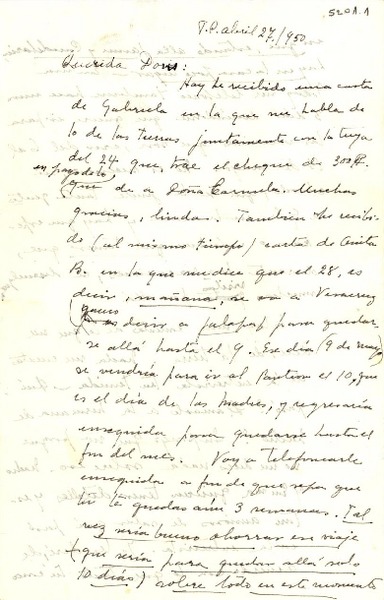 5201.1
T.P. abril 27/950
Querida Doris:
Hoy he recibido una carta
de Gabriela en la que me habla de
lo de las tierras juntamente con la tuya
del 24 que trae el cheque de 300 #.
en pago de lo
que de a Doña Carmela. Muchas
gracias, lindas. Tambien he recibi-
do (al mismo tiempo) carta de Anita
B. en la que me dice que el 28, es
decir, mañana, se va a Veracruz
(quiero decir a Jalapa) para quedar
se allá hasta el 9. Ese día (9 de mayo)
se vendría para ir al Panteon el 10, que
es el día de las Madres, y regresaría
enseguida para quedarse hasta el
fin del mes. Voy a telefonearle
enseguida a fin de que sepa que
tú te quedas aún 3 semanas. Tal
vez sería bueno ahorrar ese viaje
(que sería para quedar allá solo
10 días) sobre todo en este momento